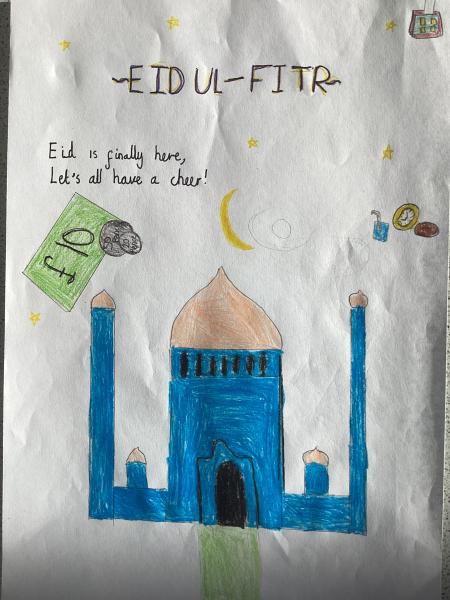 ~EID UL-FITR~
Eid is finally here,
Let's all have a cheer!
£10